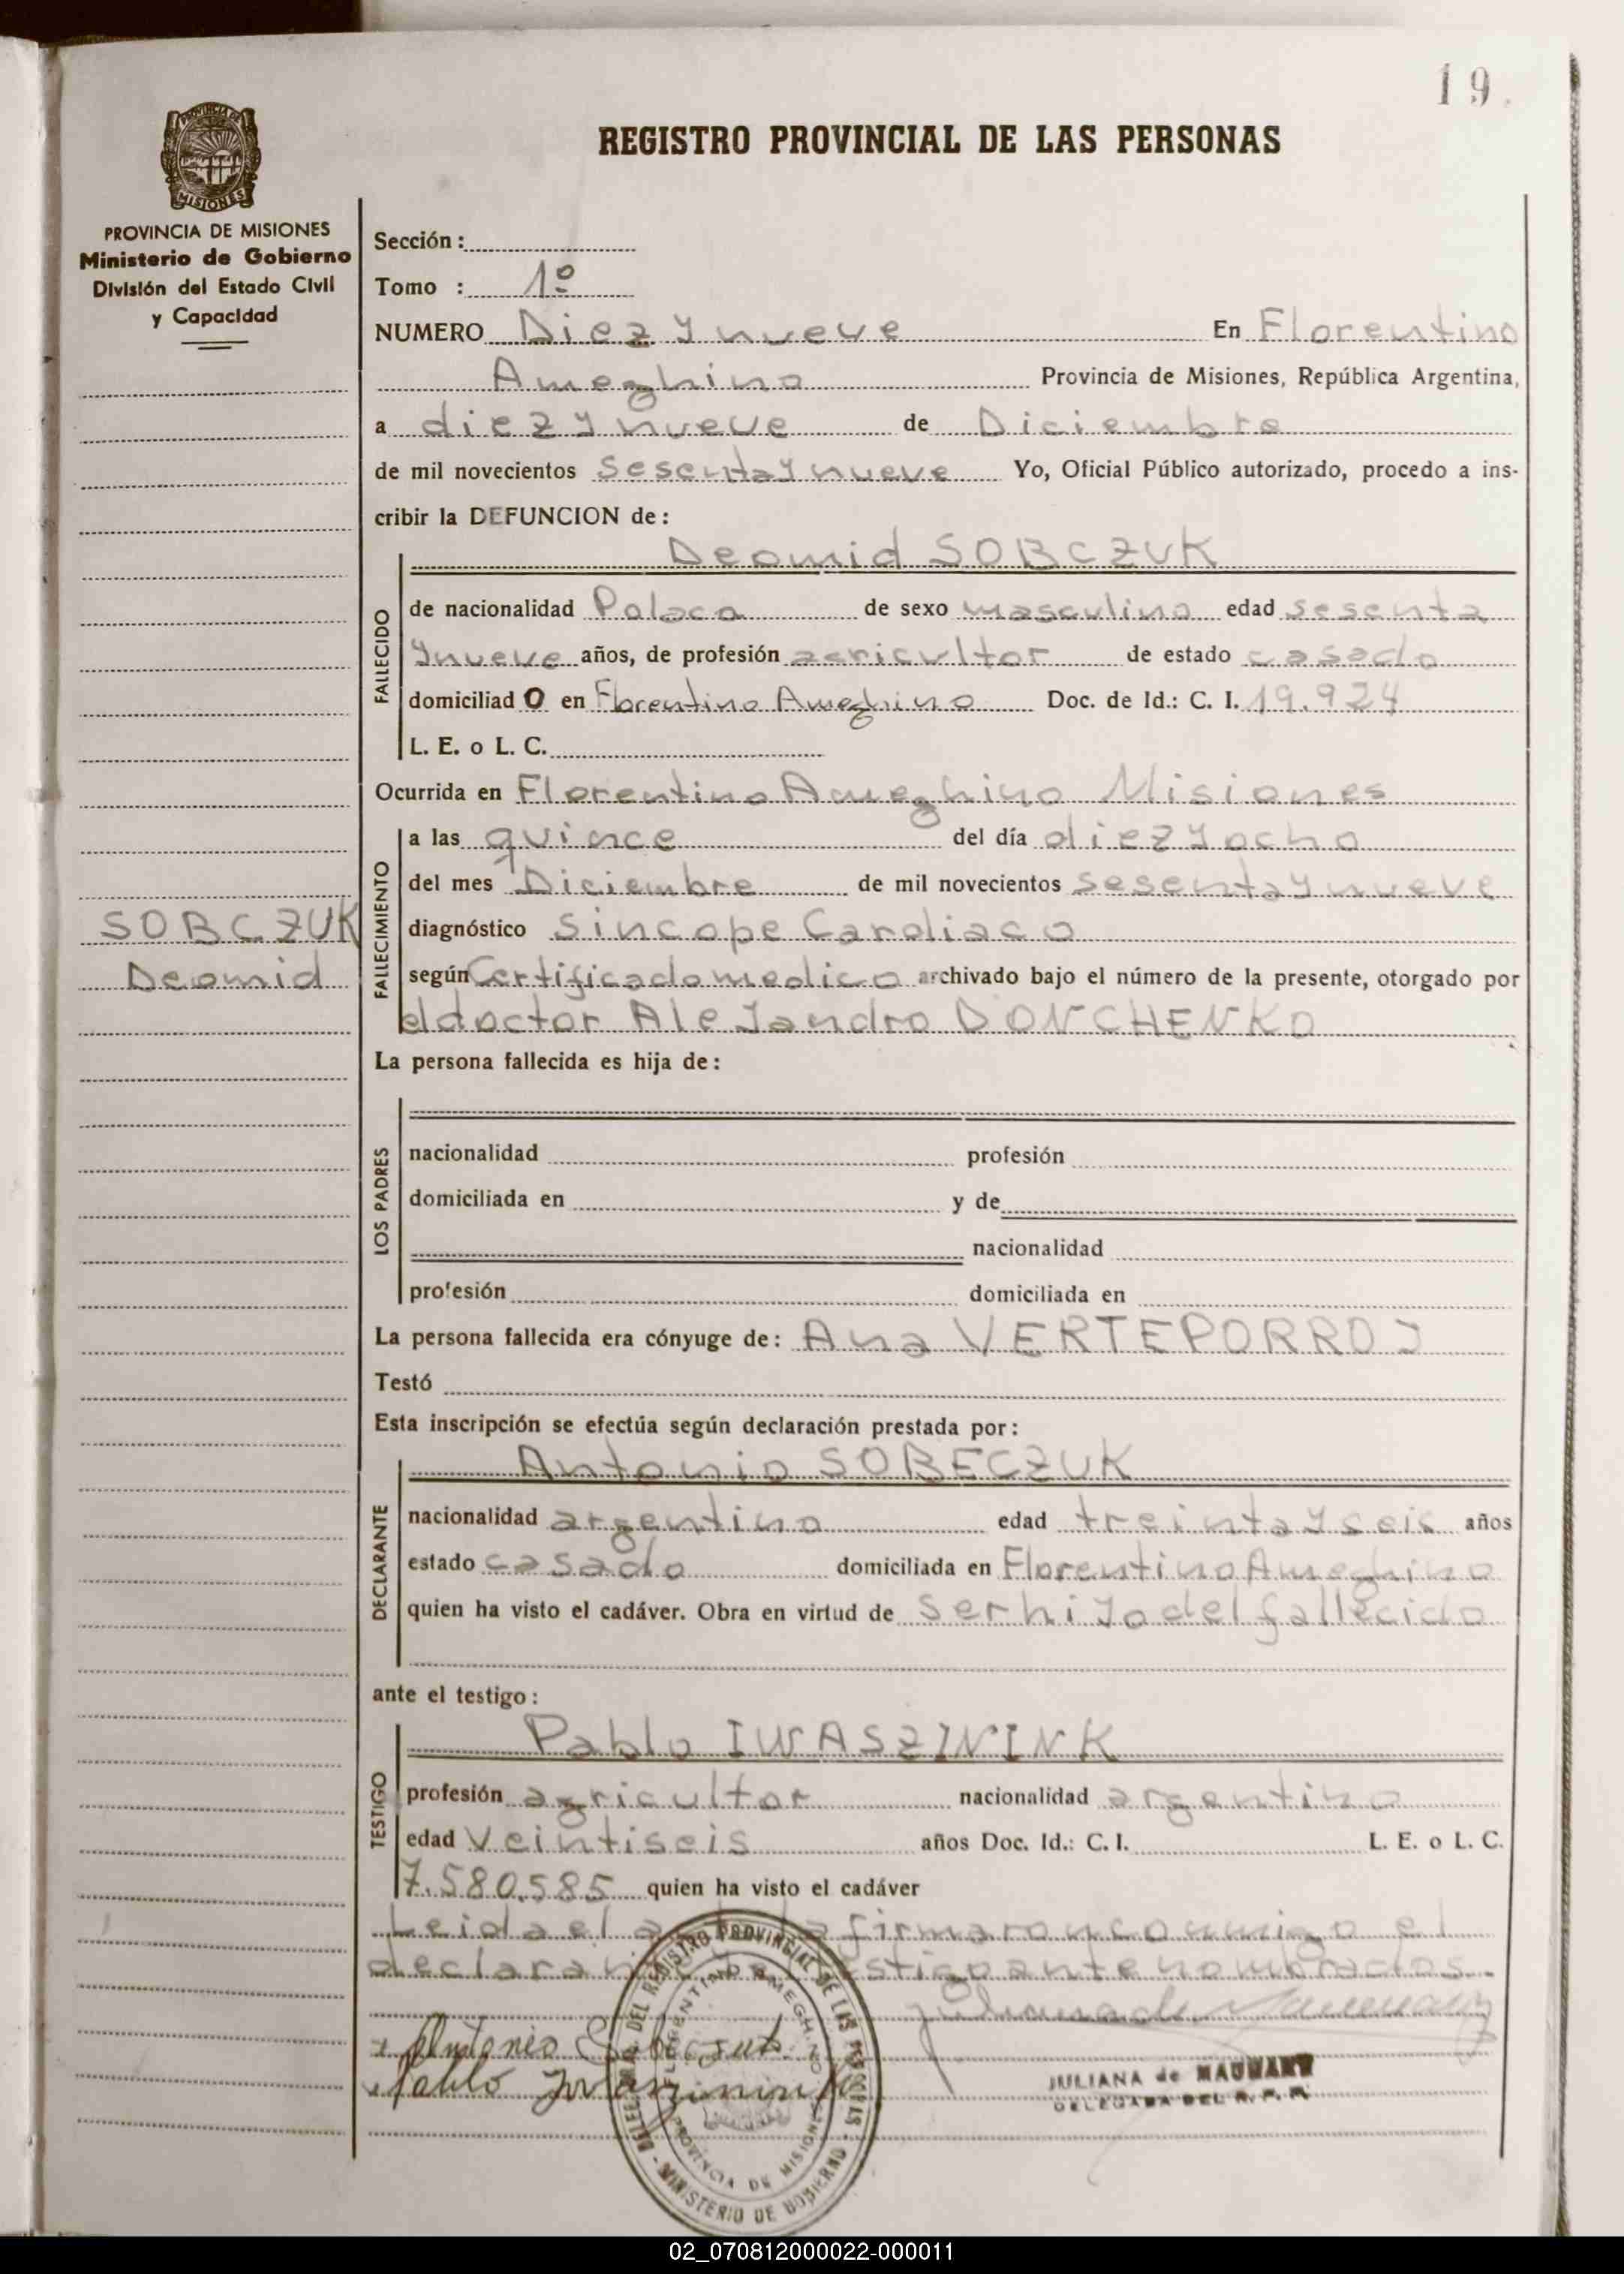 19.
REGISTRO PROVINCIAL DE LAS PERSONAS
PROVINCIA DE MISIONES
MISIONES
PROVINCIA DE MISIONES
Ministerio de Gobierno
División del Estado Civil
y Capacidad
Sección :
Tomo : 1º
NUMERO Diez y nueve En Florentino
Ameghino Provincia de Misiones, República Argentina,
a diez y nueve de Diciembre
de mil novecientos Sesenta y nueve Yo, Oficial Público autorizado, procedo a ins-
cribir la DEFUNCION de :
Deomid SOBCZUK
FALLECIDO
de nacionalidad Polaca de sexo masculino edad sesenta
y nueve años, de profesión agricultor de estado casado
domiciliad O en Florentino Ameghino Doc. de Id.: C. I. 19.924
L. E. o L. C.
Ocurrida en Florentino Ameghino Misiones
FALLECIMIENTO
a las quince del día diez y ocho
del mes Diciembre de mil novecientos sesenta y nueve
SOBCZUK
Deomid
diagnóstico Sincope Cardiaco
según Certificado medico archivado bajo el número de la presente, otorgado por
el doctor Alejandro DONCHENKO
La persona fallecida es hija de :
LOS PADRES
nacionalidad profesión
domiciliada en y de
nacionalidad
profesión domiciliada en
La persona fallecida era cónyuge de : Ana VERTEPORROJ
Testó
Esta inscripción se efectúa según declaración prestada por :
Antonio SOBECZUK
DECLARANTE
nacionalidad argentino edad treinta y seis años
estado casado domiciliada en Florentino Ameghino
quien ha visto el cadáver. Obra en virtud de ser hijo del fallecido
ante el testigo :
Pablo IWASZININK
TESTIGO
profesión agricultor nacionalidad argentino
edad Veintiseis años Doc. Id.: C. I. L. E. o L. C.
7.580.585 quien ha visto el cadáver
Leida el firmaron conmigo el
declarante antenombrados.
Antonio Sobeczuk
Pablo Iwaszinink
JULIANA de
DELEGADA DEL R. P. P.
DEL REGISTRO PROVINCIAL DE LAS PERSONAS
FLORENTINO AMEGHINO
PROVINCIA DE MISIONES
MINISTERIO DE GOBIERNO
02_070812000022-000011